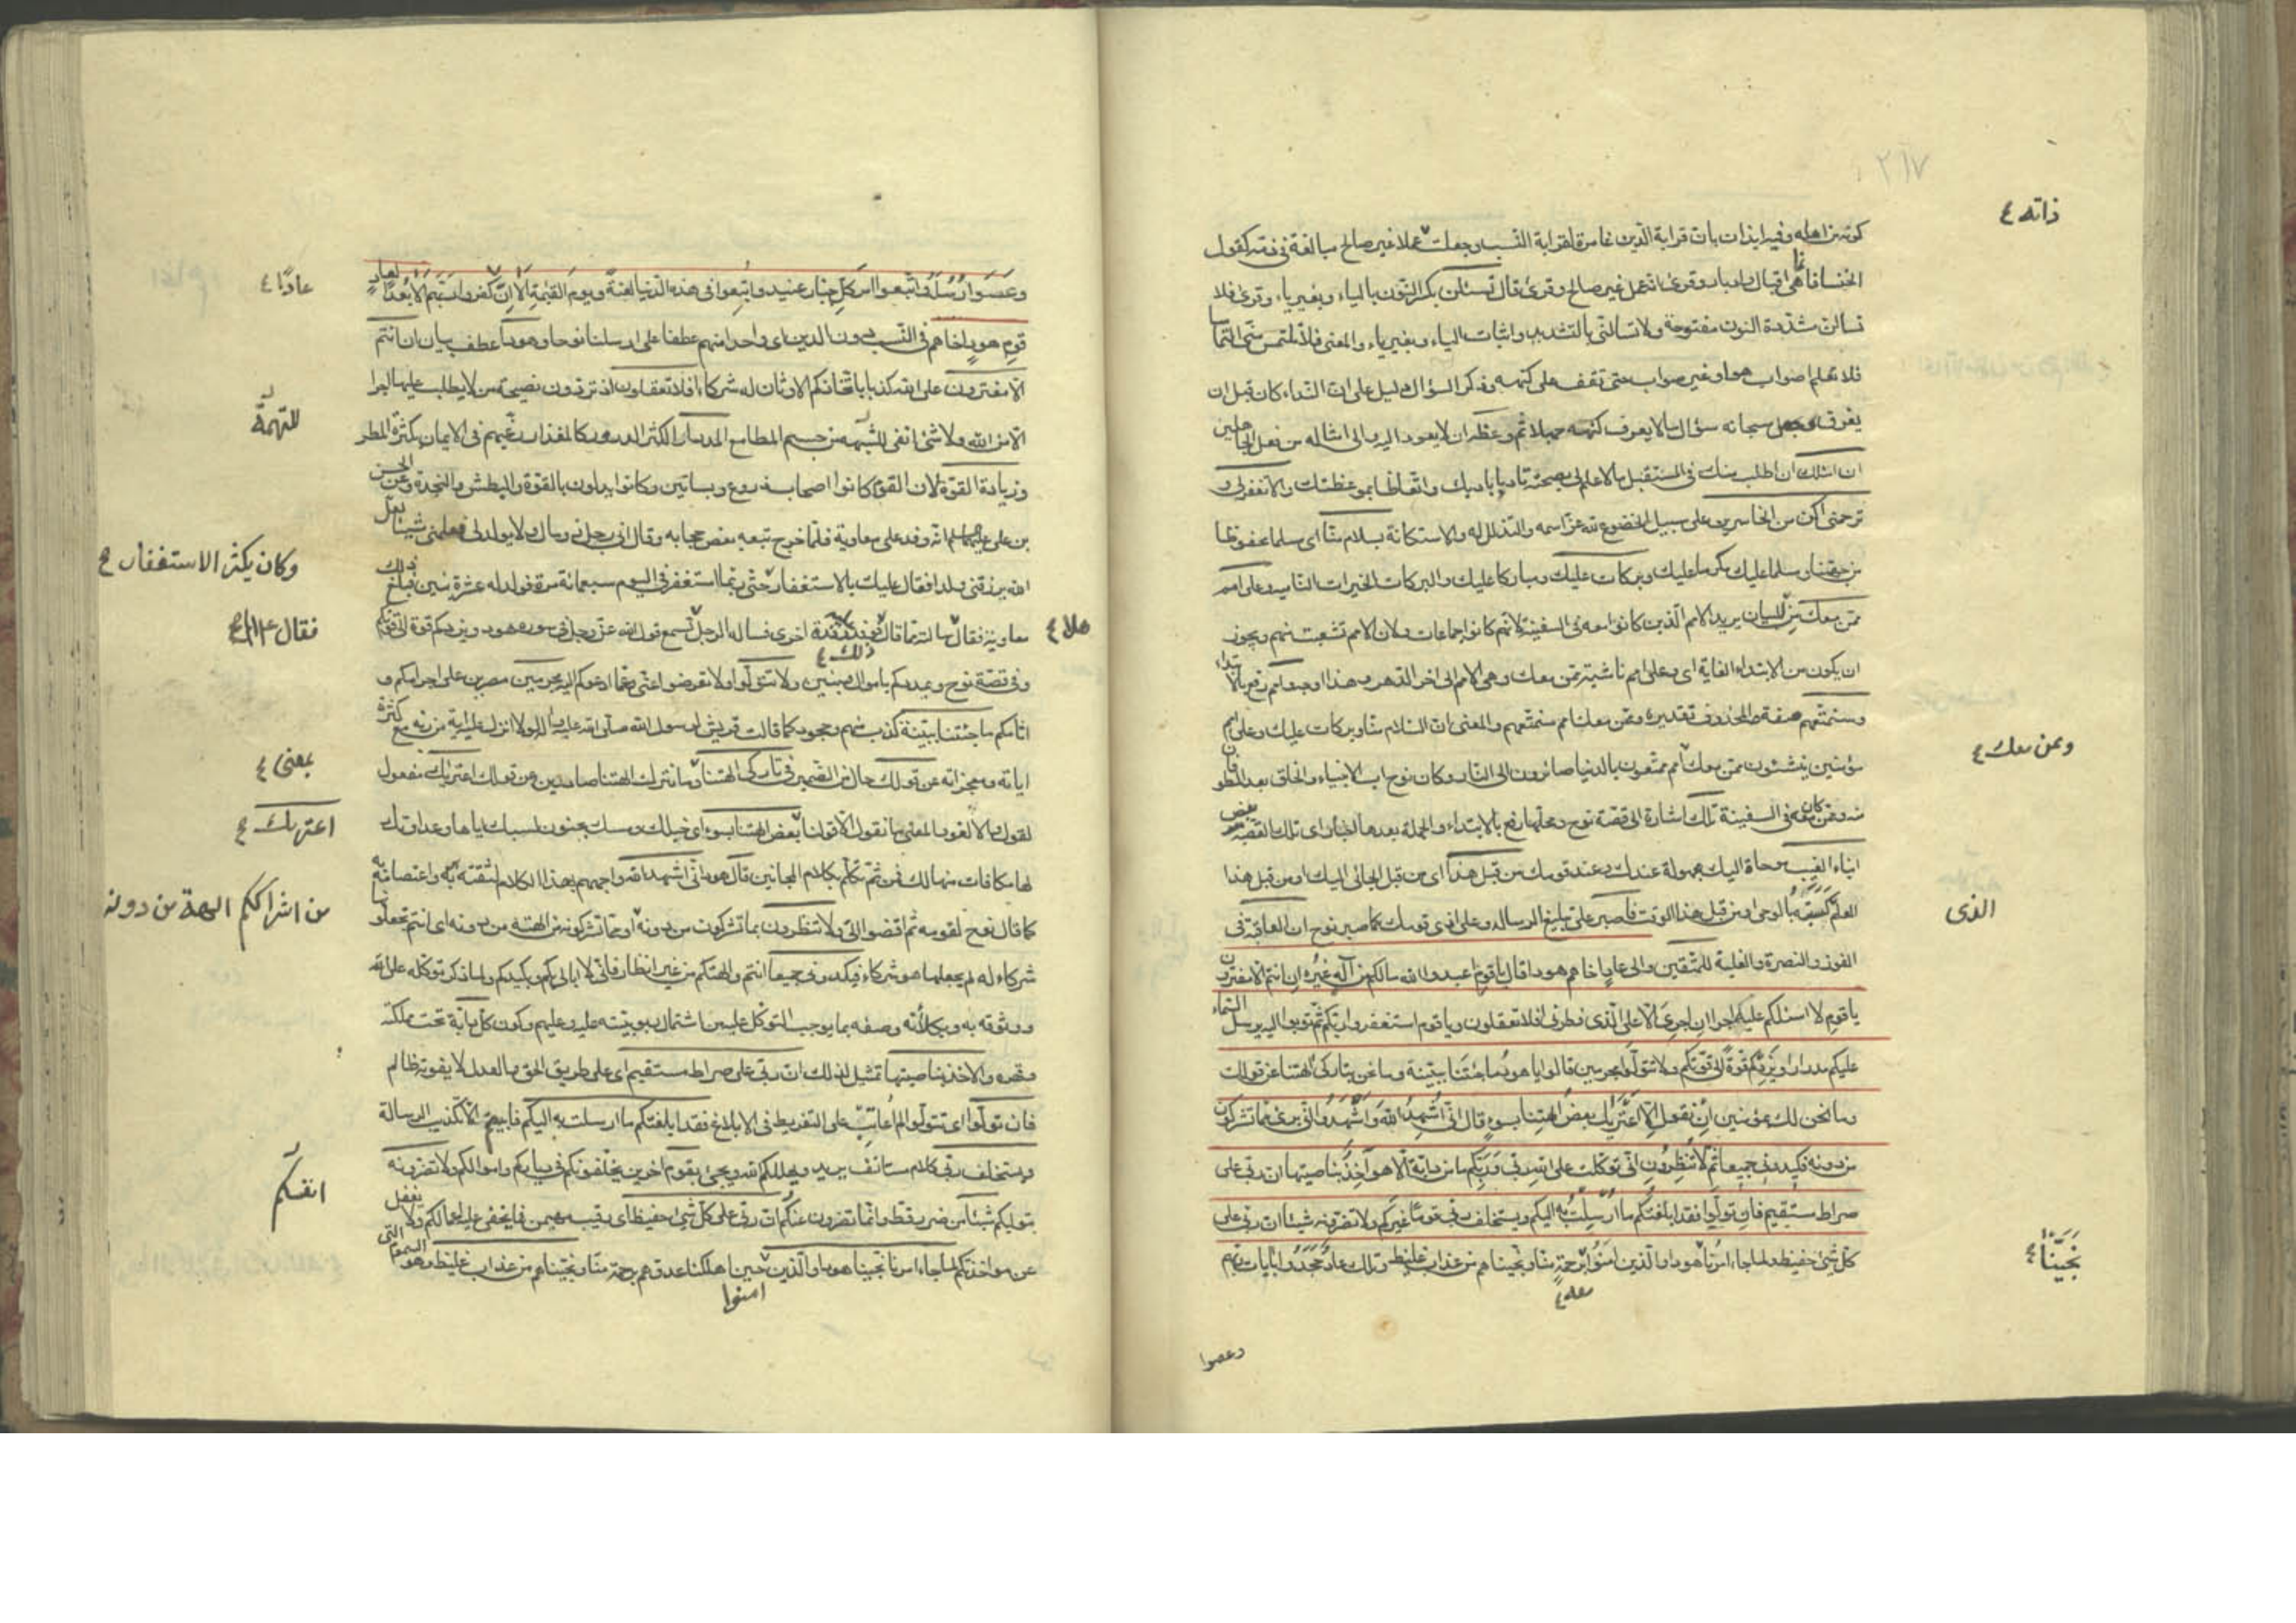 ٢٦٧
ذاته ع
كونه من اهله وفيه ايذان بان قرابة الدين غامرة لقرابة النسب وجعلت عملا غير صالح مبالغة فى ذمه كقول
الخنسا فانما هى اقبال وادبار وقرئ انه عمل غير صالح وقرئ فلا تسئلن بكسر النون بالياء وبغير ياء وقرئ فلا
تسالن مشددة النون مفتوحة ولا تسالنى بالتشديد واثبات الياء وبغير ياء والمعنى فلا تلتمس منى التماسا
فلا تعلم اصواب هو او غير صواب حتى تقف على كنهه وذكر السؤال دليل على ان النداء كان قبل ان
يغرق وجعل سبحانه سؤال ما لا يعرف كنهه جهلا ثم وعظه ان لا يعود اليه والى امثاله من فعل الجاهلين
ان اسئلك ان اطلب منك فى المستقبل ما لا علم لى بصحته تادبا بادبك واتعاظا بموعظتك والا تغفر لى و
ترحمنى اكن من الخاسرين على سبيل الخضوع لله عز اسمه والتذلل له والاستكانة بسلام منا اى مسلما محفوظا
من جهتنا او مسلما عليك مكرما عليك وبركات عليك ومباركا عليك والبركات الخيرات الناميه وعلى امم
ممن معك من للبيان يريد الامم الذين كانوا معه فى السفينة لانهم كانوا جماعات ولان الامم تشعبت منهم ويجوز
ان يكون من لابتداء الغاية اى وعلى امم ناشية ممن معك وهى الامم الى اخر الدهر وهذا اوجه وامم رفع بالابتداء
وسنمتعهم صفة والمحذوف تقديره وممن معك امم سنمتعهم والمعنى ان السلام منا وبركات عليك وعلى امم
وممن معك ع
مؤمنين ينشئون ممن معك امم ممتعون بالدنيا صائرون الى النار وكان نوح اب الانبياء والخلق بعد الطوفان
منه وممن كان معه فى السفينة تلك اشارة الى قصة نوح ومحلها رفع بالابتداء والجملة بعدها اخبار اى تلك القصة بعض
انباء الغيب موحاة اليك مجهولة عندك وعند قومك من قبل هذا اى من قبل ايحائى اليك او من قبل هذا
الذى
العلم كسبته بالوحى او من قبل هذا الوقت فاصبر على تبليغ الرسالة وعلى اذى قومك كما صبر نوح ان العاقبة فى
الفوز والنصرة والغلبة للمتقين والى عاد اخاهم هودا قال يا قوم اعبدوا الله ما لكم من اله غيره ان انتم الا مفترون
يا قوم لا اسئلكم عليه اجرا ان اجرى الا على الذى فطرنى افلا تعقلون ويا قوم استغفروا ربكم ثم توبوا اليه يرسل السماء
عليكم مدرارا ويزدكم قوة الى قوتكم ولا تتولوا مجرمين قالوا يا هود ما جئتنا ببينة وما نحن بتاركى الهتنا عن قولك
وما نحن لك بمؤمنين ان نقول الا اعتريك بعض الهتنا بسوء قال انى اشهد الله واشهدوا انى برئ مما تشركون
من دونه فكيدونى جميعا ثم لا تنظرون انى توكلت على الله ربى وربكم ما من دابة الا هو آخذ بناصيتها ان ربى على
صراط مستقيم فان تولوا فقد ابلغتكم ما ارسلت به اليكم ويستخلف ربى قوما غيركم ولا تضرونه شيئا ان ربى على
كل شئ حفيظ ولما جاء امرنا هودا والذين امنوا برحمة منا ونجيناهم من عذاب غليظ وتلك عاد جحدوا بايات ربهم
نجينا ع
معه ع
وعصوا
وعصوا رسله واتبعوا امر كل جبار عنيد واتبعوا فى هذه الدنيا لعنة ويوم القيمة الا ان كفروا ربهم الا بعدا لعاد
عادا ع
قوم هود اخاهم فى النسب دون الدين اى واحدا منهم عطفا على ارسلنا نوحا وهودا عطف بيان ان انتم
الا مفترون على الله كذبا باتخاذكم الاوثان له شركاء افلا تعقلون اذ تردون نصيحة من لا يطلب عليها اجرا
للتهمة
الا من الله ولا شئ انفى للتهمة من حسم المطامع المدرار الكثير الدرور كالمغزار رغبهم فى الايمان بكثرة المطر
وزيادة القوة لان القوم كانوا اصحاب زروع وبساتين وكانوا يدلون بالقوة والبطش والنجدة وعن الحسن
بن على عليهما السلام انه وفد على معاوية فلما خرج تبعه بعض حجابه وقال انى رجل ذو مال ولا يولد لى فعلمنى شيئا لعل
وكان يكثر الاستغفار ع
الله يرزقنى ولدا فقال عليك بالاستغفار حتى ربما استغفر فى اليوم سبعمائة مرة فولد له عشرة بنين فبلغ ذلك
هلا ع
معاوية فقال سالته مما قال فوفد وفدة اخرى فساله الرجل تسمع قول الله عز وجل فى سورة هود ويزدكم قوة الى قوتكم
فقال ع
ذلك ع
وفى قصة نوح ويمددكم باموال وبنين ولا تتولوا ولا تعرضوا عنى وعما ادعوكم اليه مجرمين مصرين على اجرامكم و
اثامكم ما جئتنا ببينة كذب منهم وجحود كما قالت قريش لرسول الله صلى الله عليه واله لولا انزل عليه اية من ربه مع كثرة
بمعنى ع
اياته ومعجزاته عن قولك حال من الضمير فى تاركى الهتنا وما نترك الهتنا صادرين عن قولك اعتريك مفعول
اعتريك ع
نقول والا لغو والمعنى ما نقول الا قولنا بعض الهتنا بسوء اى خبلك ومسك بجنون لسبك اياها وعداوتك
لها مكافات منها لك فمن ثم تتكلم بكلام المجانين قال هود انى اشهد الله واجههم بهذا الكلام لثقته بربه واعتصامه به
من اشراككم الهة من دونه
كما قال نوح لقومه ثم اقضوا الى ولا تنظرون مما تشركون من دونه او مما تشركونه من الهته من دونه اى انتم تجعلونها
شركاء له لم يجعلها هو شركاء فكيدونى جميعا انتم والهتكم من غير انظار فانى لا ابالى بكم وبكيدكم ولما ذكر توكله على الله
ووثوقه به وبكلأته وصفه بما يوجب التوكل عليه من اشتمال ربوبيته عليه وعليهم وكون كل دابة تحت ملكته
وقهره والاخذ بناصيتها تمثيل لذلك ان ربى على صراط مستقيم اى على طريق الحق والعدل لا يفوته ظالم
فان تولوا اى تتولوا لم اعاتب على التفريط فى الابلاغ فقد ابلغتكم ما ارسلت به اليكم فابيتم الا تكذيب الرسالة
ويستخلف ربى كلام مستانف يريد ويهلككم الله ويجئ بقوم اخرين يخلفونكم فى دياركم واموالكم ولا تضرونه
انفسكم
بتوليكم شيئا من ضرر قط وانما تضرون ان ربى على كل شئ حفيظ اى رقيب مهيمن فما يخفى عليه اعمالكم ولا يغفل
عن مواخذتكم ولما جاء امرنا نجينا هودا والذين حين اهلكنا عدوهم برحمة منا ونجيناهم من عذاب غليظ وهو السموم التى
امنوا